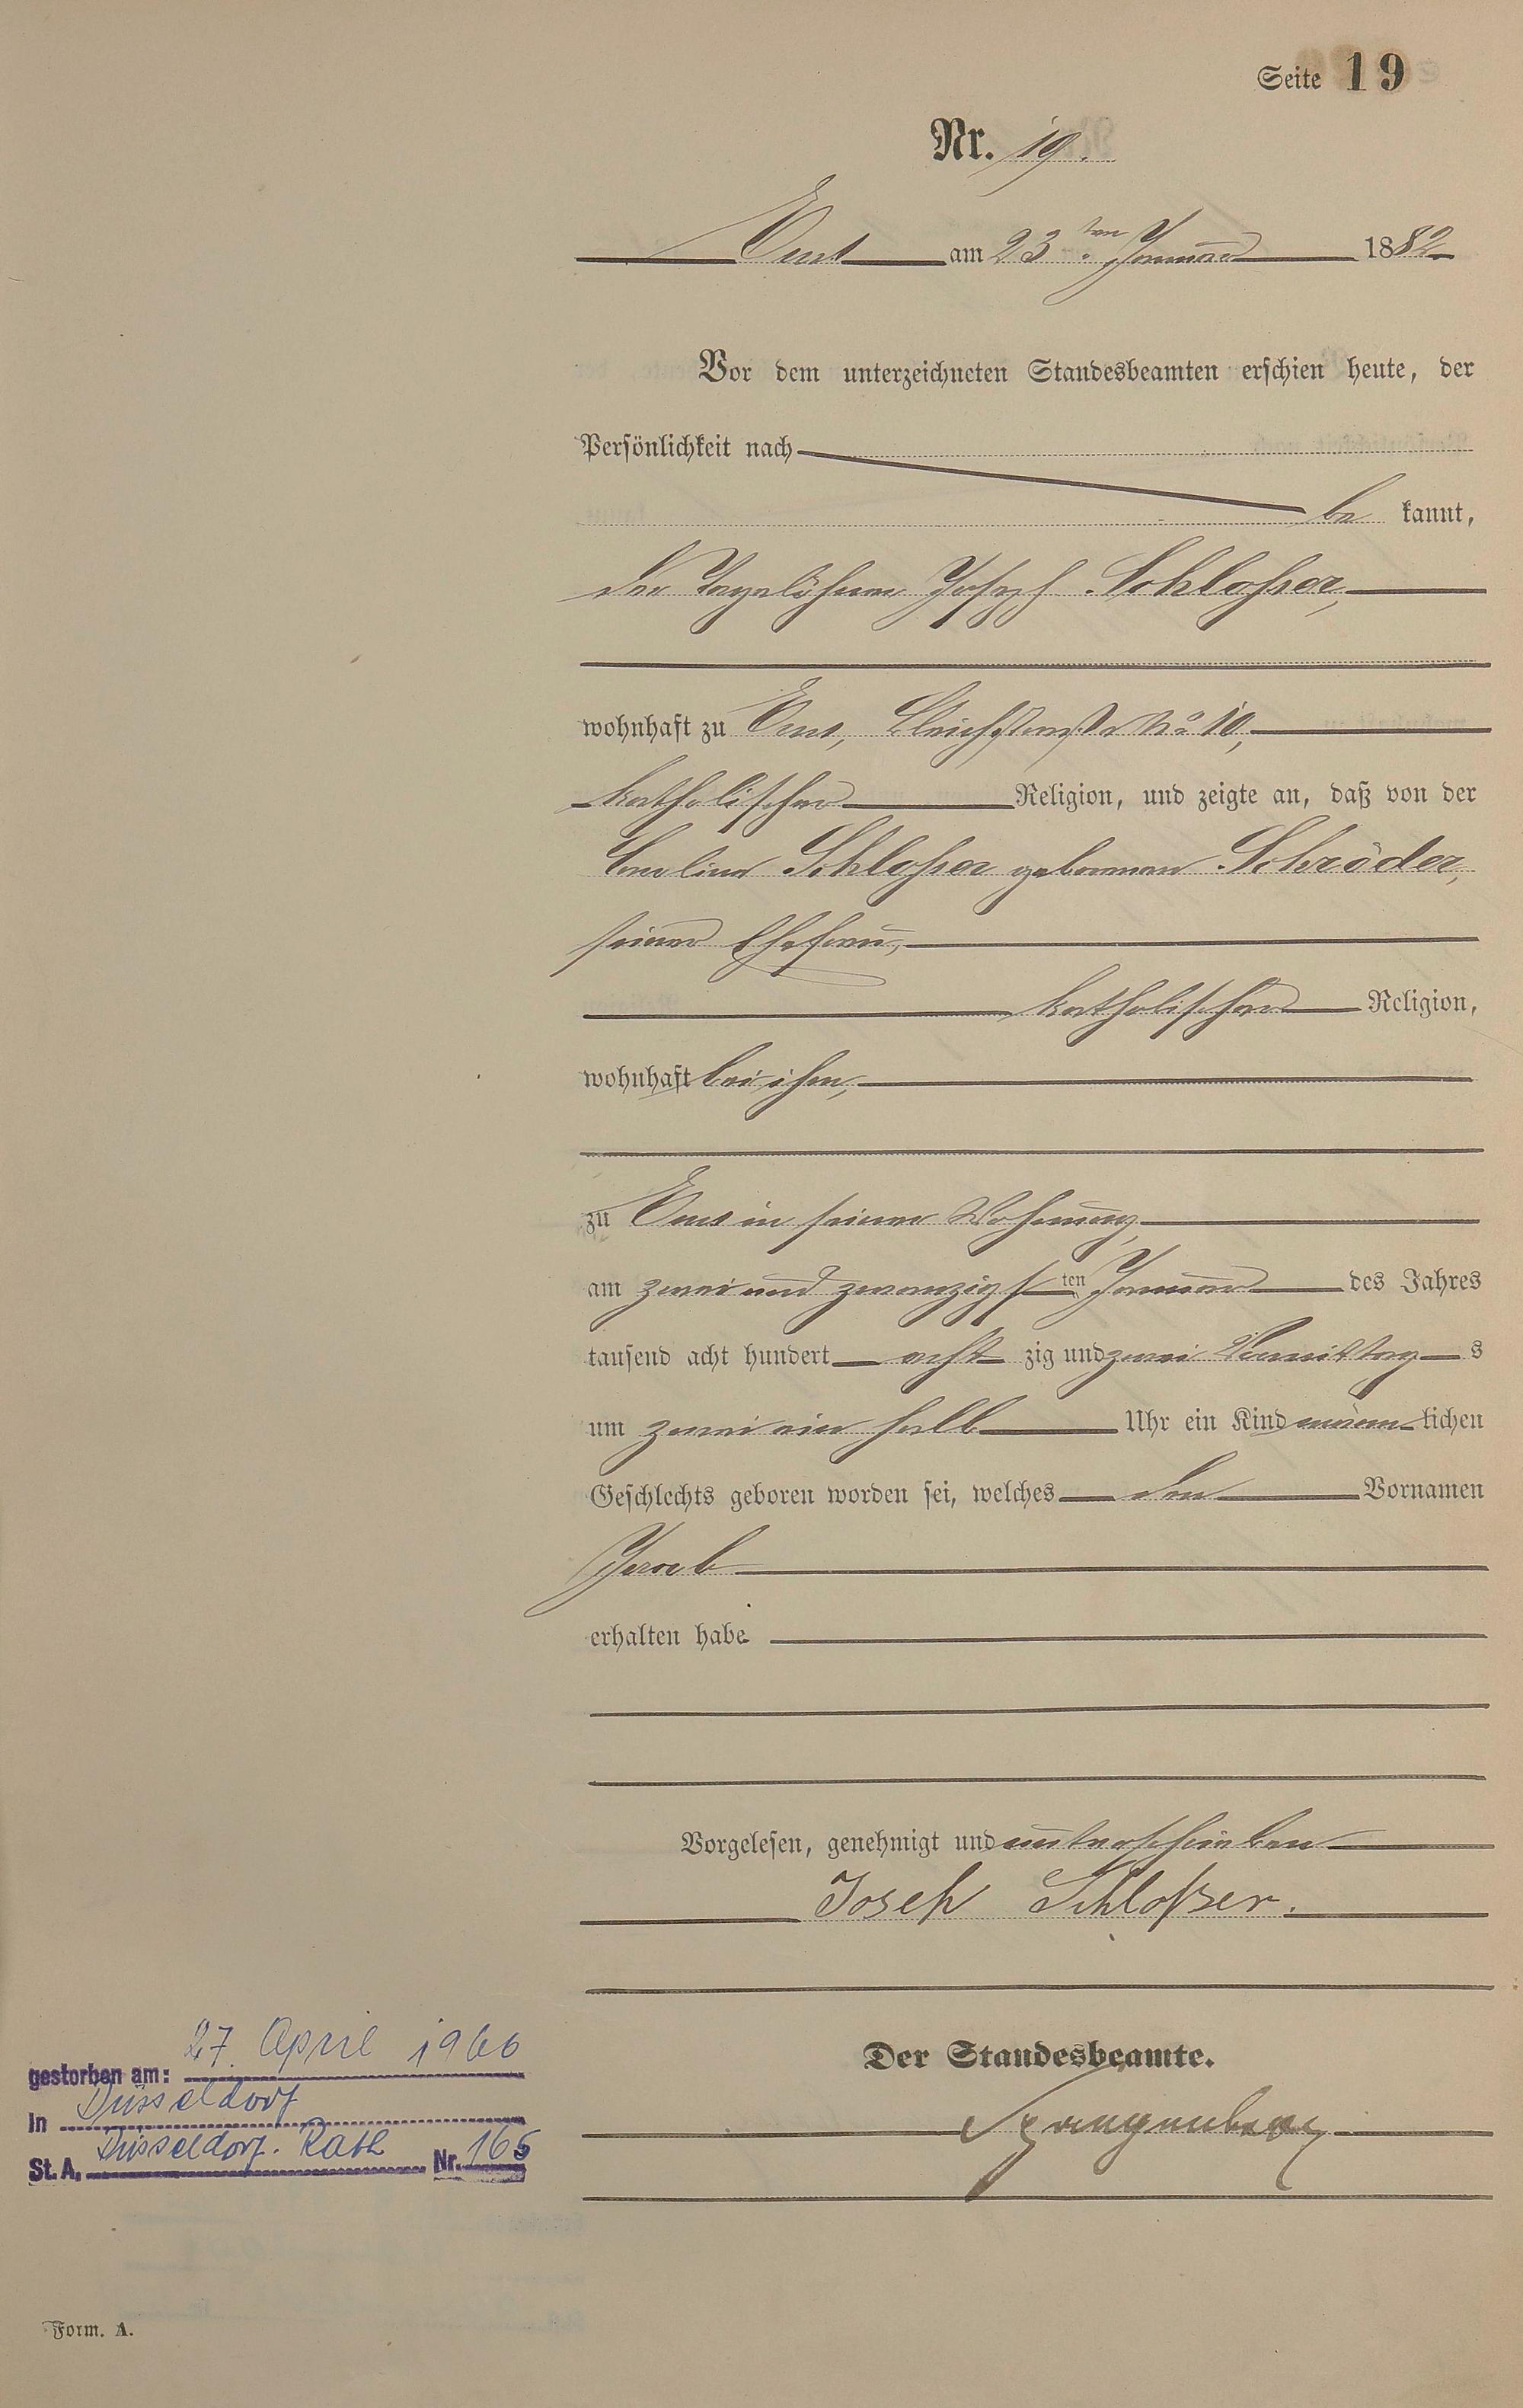 Seite 19
Nr. 19.
Ems am 23ten Januar 1882
Vor dem unterzeichneten Standesbeamten erschien heute, der
Persönlichkeit nach
be kannt,
der Tagelöhner Joseph Schloßer,
wohnhaft zu Ems, Bleichstraße No 10,
katholischer Religion, und zeigte an, daß von der
Carolina Schloßer geborenen Schröder,
seiner Ehefrau,
katholischer Religion,
wohnhaft bei ihm,
zu Ems in seiner Wohnung,
am zwei und zwanzigsten Januar des Jahres
tausend acht hundert acht zig und zwei Vormittags
um zwei ein halb Uhr ein Kind männlichen
Geschlechts geboren worden sei, welches den Vornamen
Jacob
erhalten habe
Vorgelesen, genehmigt und unterschrieben
Joseh Schloßer.
Der Standesbeamte.
Spangenberg
gestorben am: 27. April 1960
In Düsseldorf
St. A. Düsseldorf-Rath Nr. 165
Form. A.